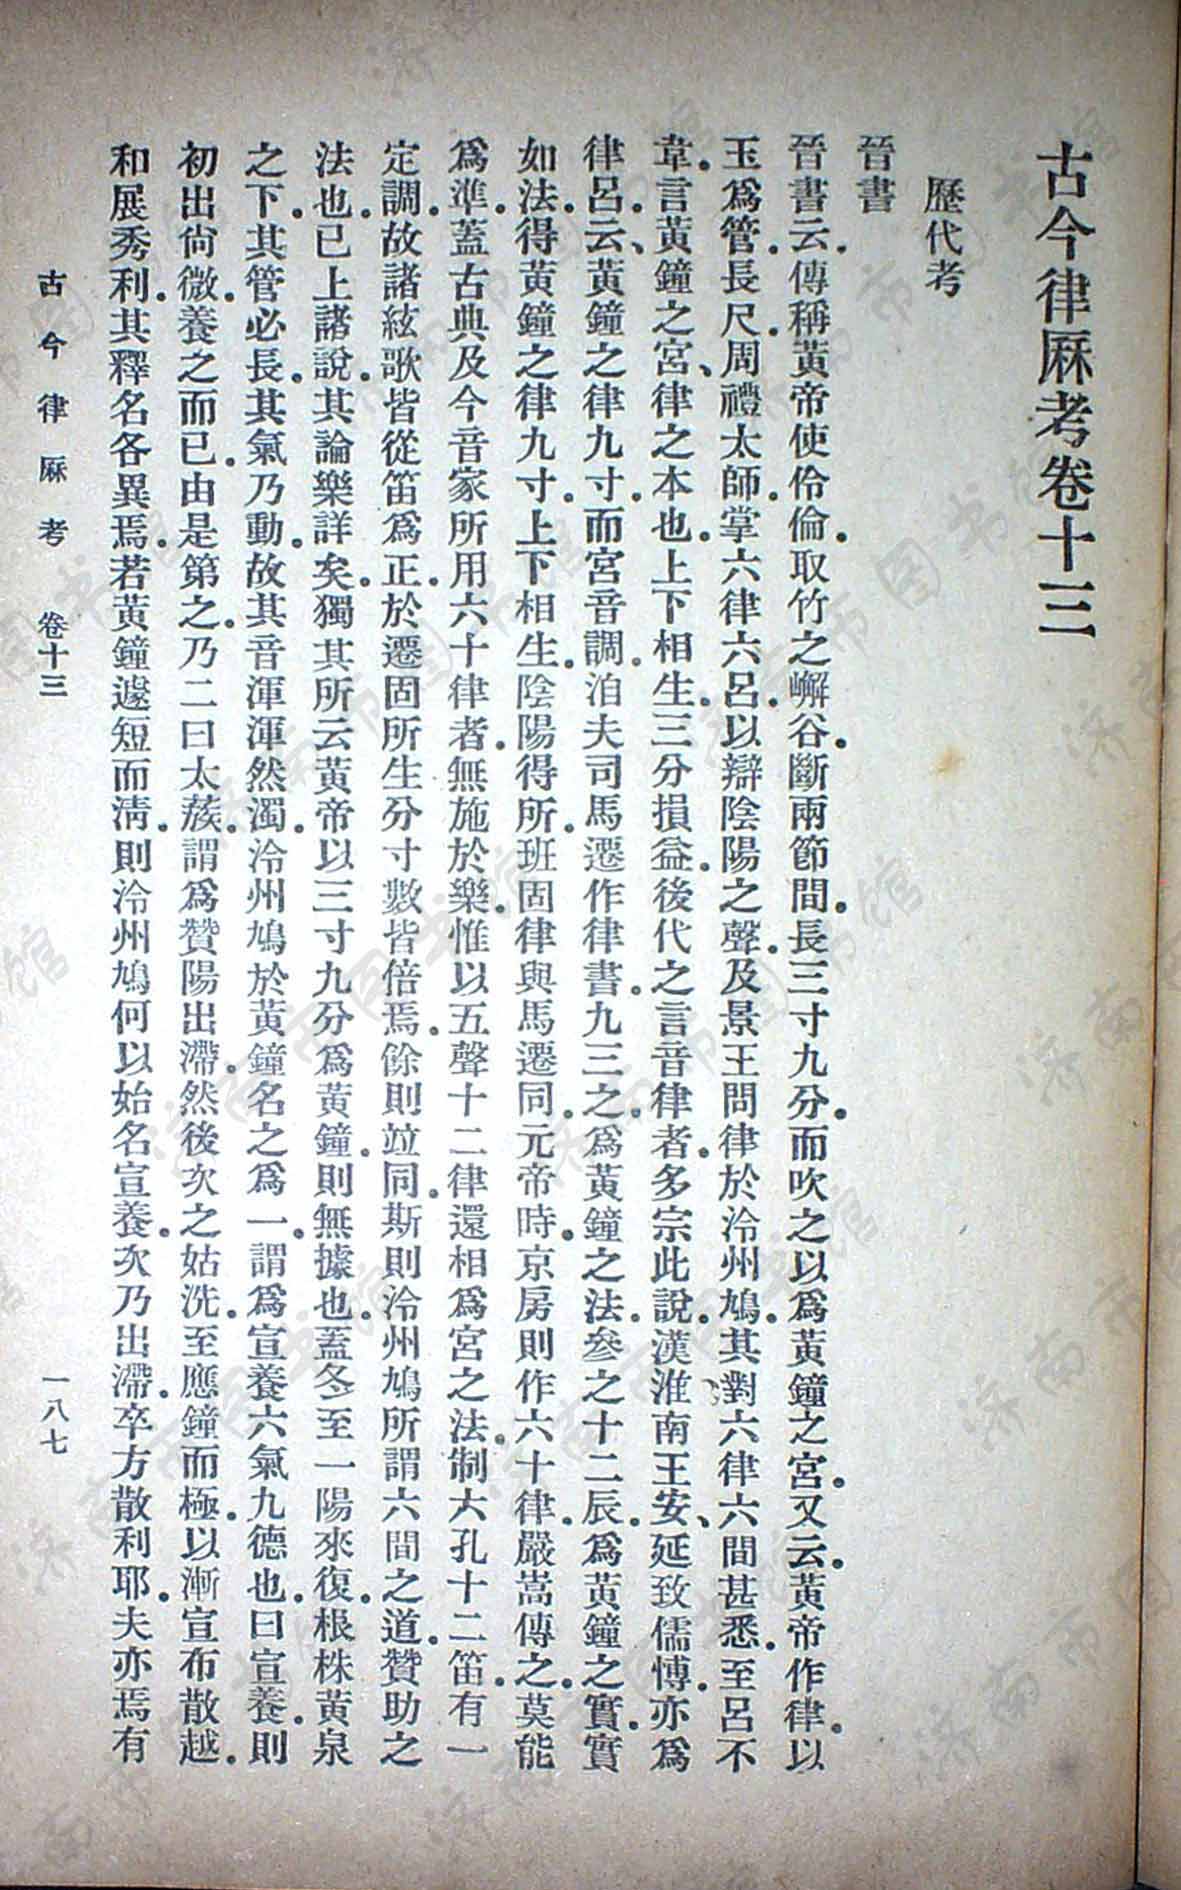 古今律厤考卷十三
歷代考
晉書
晉書云。傳稱黃帝使伶倫。取竹之嶰谷。斷兩節間。長三寸九分。而吹之以爲黃鐘之宮。又云。黃帝作律。以
玉爲管。長尺。周禮太師。掌六律六呂。以辯陰陽之聲。及景王問律於泠州鳩。其對六律六間甚悉。至呂不
韋。言黃鐘之宮、律之本也。上下相生。三分損益。後代之言音律者。多宗此說。漢淮南王安、延致儒博。亦爲
律呂。云、黃鐘之律九寸。而宮音調。洎夫司馬遷作律書。九三之。爲黃鐘之法。參之十二辰。爲黃鐘之實。實
如法。得黃鐘之律九寸。上下相生。陰陽得所。班固律與馬遷同。元帝時。京房則作六十律。嚴嵩傳之。莫能
爲準。蓋古典及今音家所用六十律者。無施於樂。惟以五聲十二律還相爲宮之法。制六孔十二笛。有一
定調。故諸絃歌皆從笛爲正。於遷固所生分寸數皆倍焉。餘則竝同。斯則泠州鳩所謂六間之道。贊助之
法也。已上諸說。其論樂詳矣。獨其所云黃帝以三寸九分爲黃鐘。則無據也。蓋冬至一陽來復。根株黃泉
之下。其管必長。其氣乃動。故其音渾渾然濁。泠州鳩於黃鐘名之爲一。謂爲宣養六氣九德也。曰宣養。則
初出尙微。養之而已。由是第之。乃二曰太蔟。謂爲贊陽出滯。然後次之姑洗。至應鐘而極。以漸宣布散越。
和展秀利。其釋名各異焉。若黃鐘遽短而淸。則泠州鳩何以始名宣養。次乃出滯。卒方散利耶。夫亦焉有
古今律厤考 卷十三 一八七